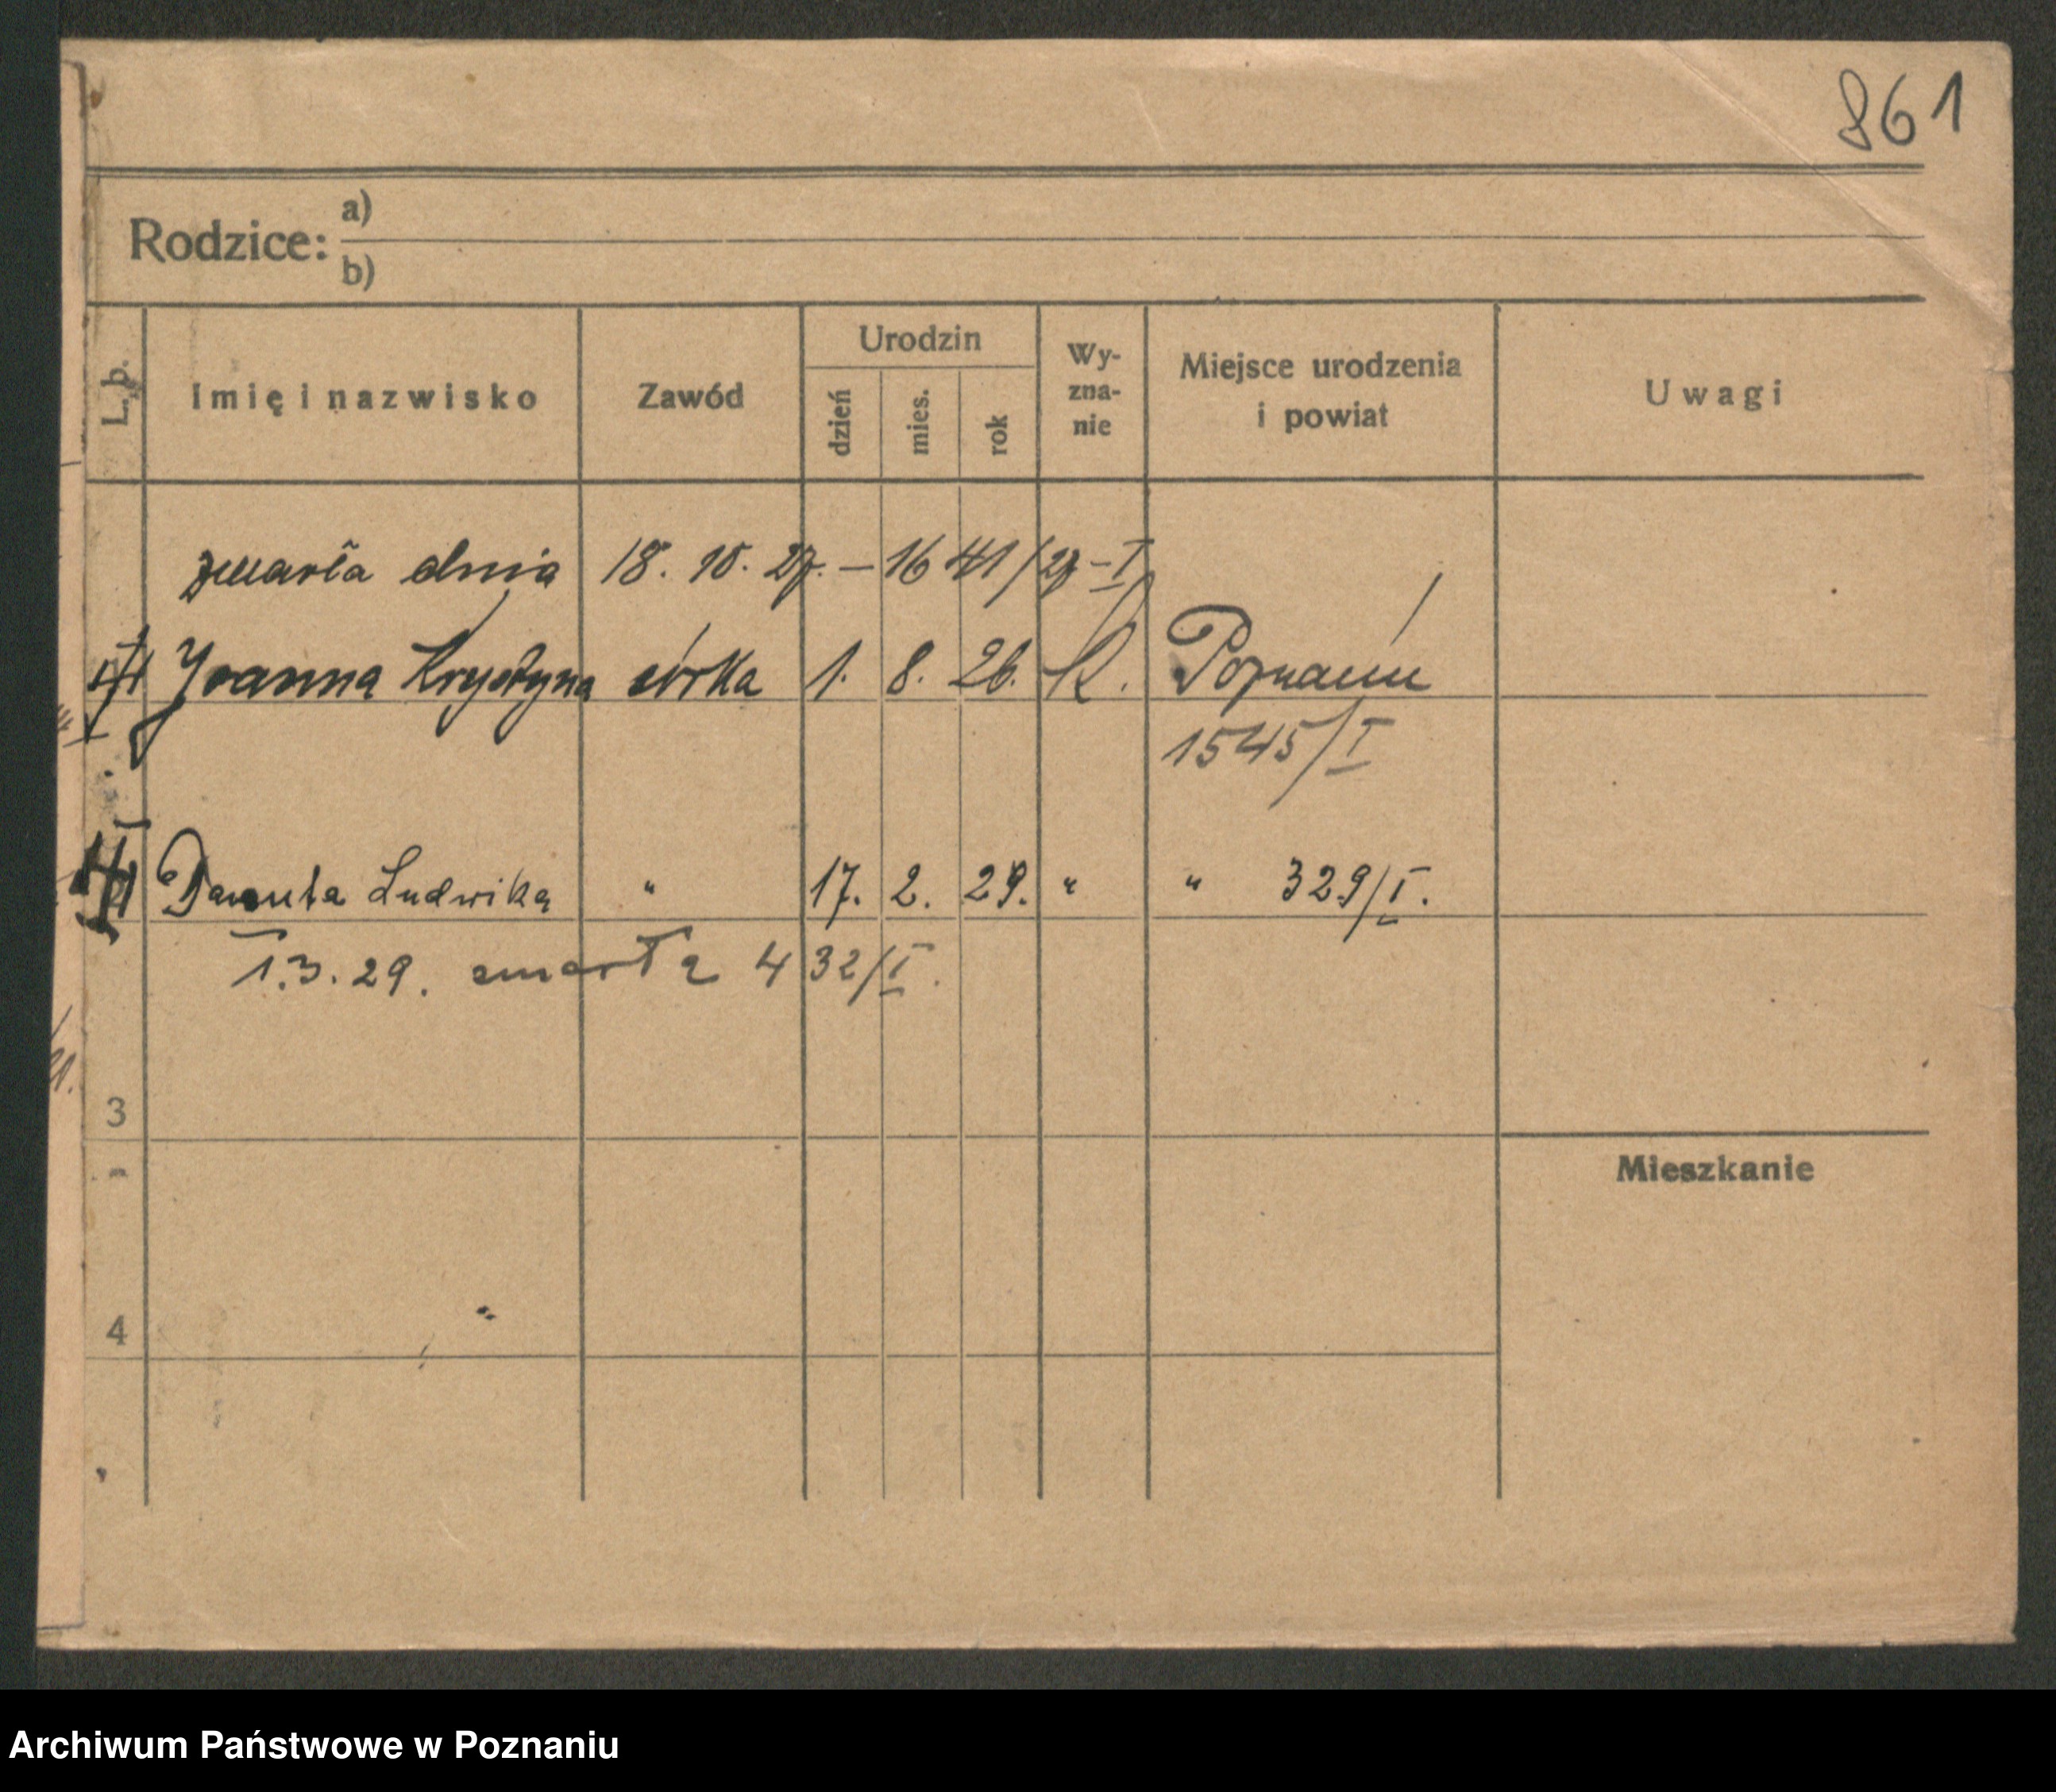 861
Rodzice: a)
b)
L. b. Imię i nazwisko Zawód Urodzin dzień mies. rok Wyznanie Miejsce urodzenia i powiat Uwagi
zmarła dnia 18. 10. 27. – 1641/27 – I
Joanna Krystyna córka 1. 8. 26. K. Poznań
1545/I
Danuta Ludwika " 17. 2. 29. " " 329/I.
1.3.29. zmarła 432/I.
3
Mieszkanie
4
Archiwum Państwowe w Poznaniu